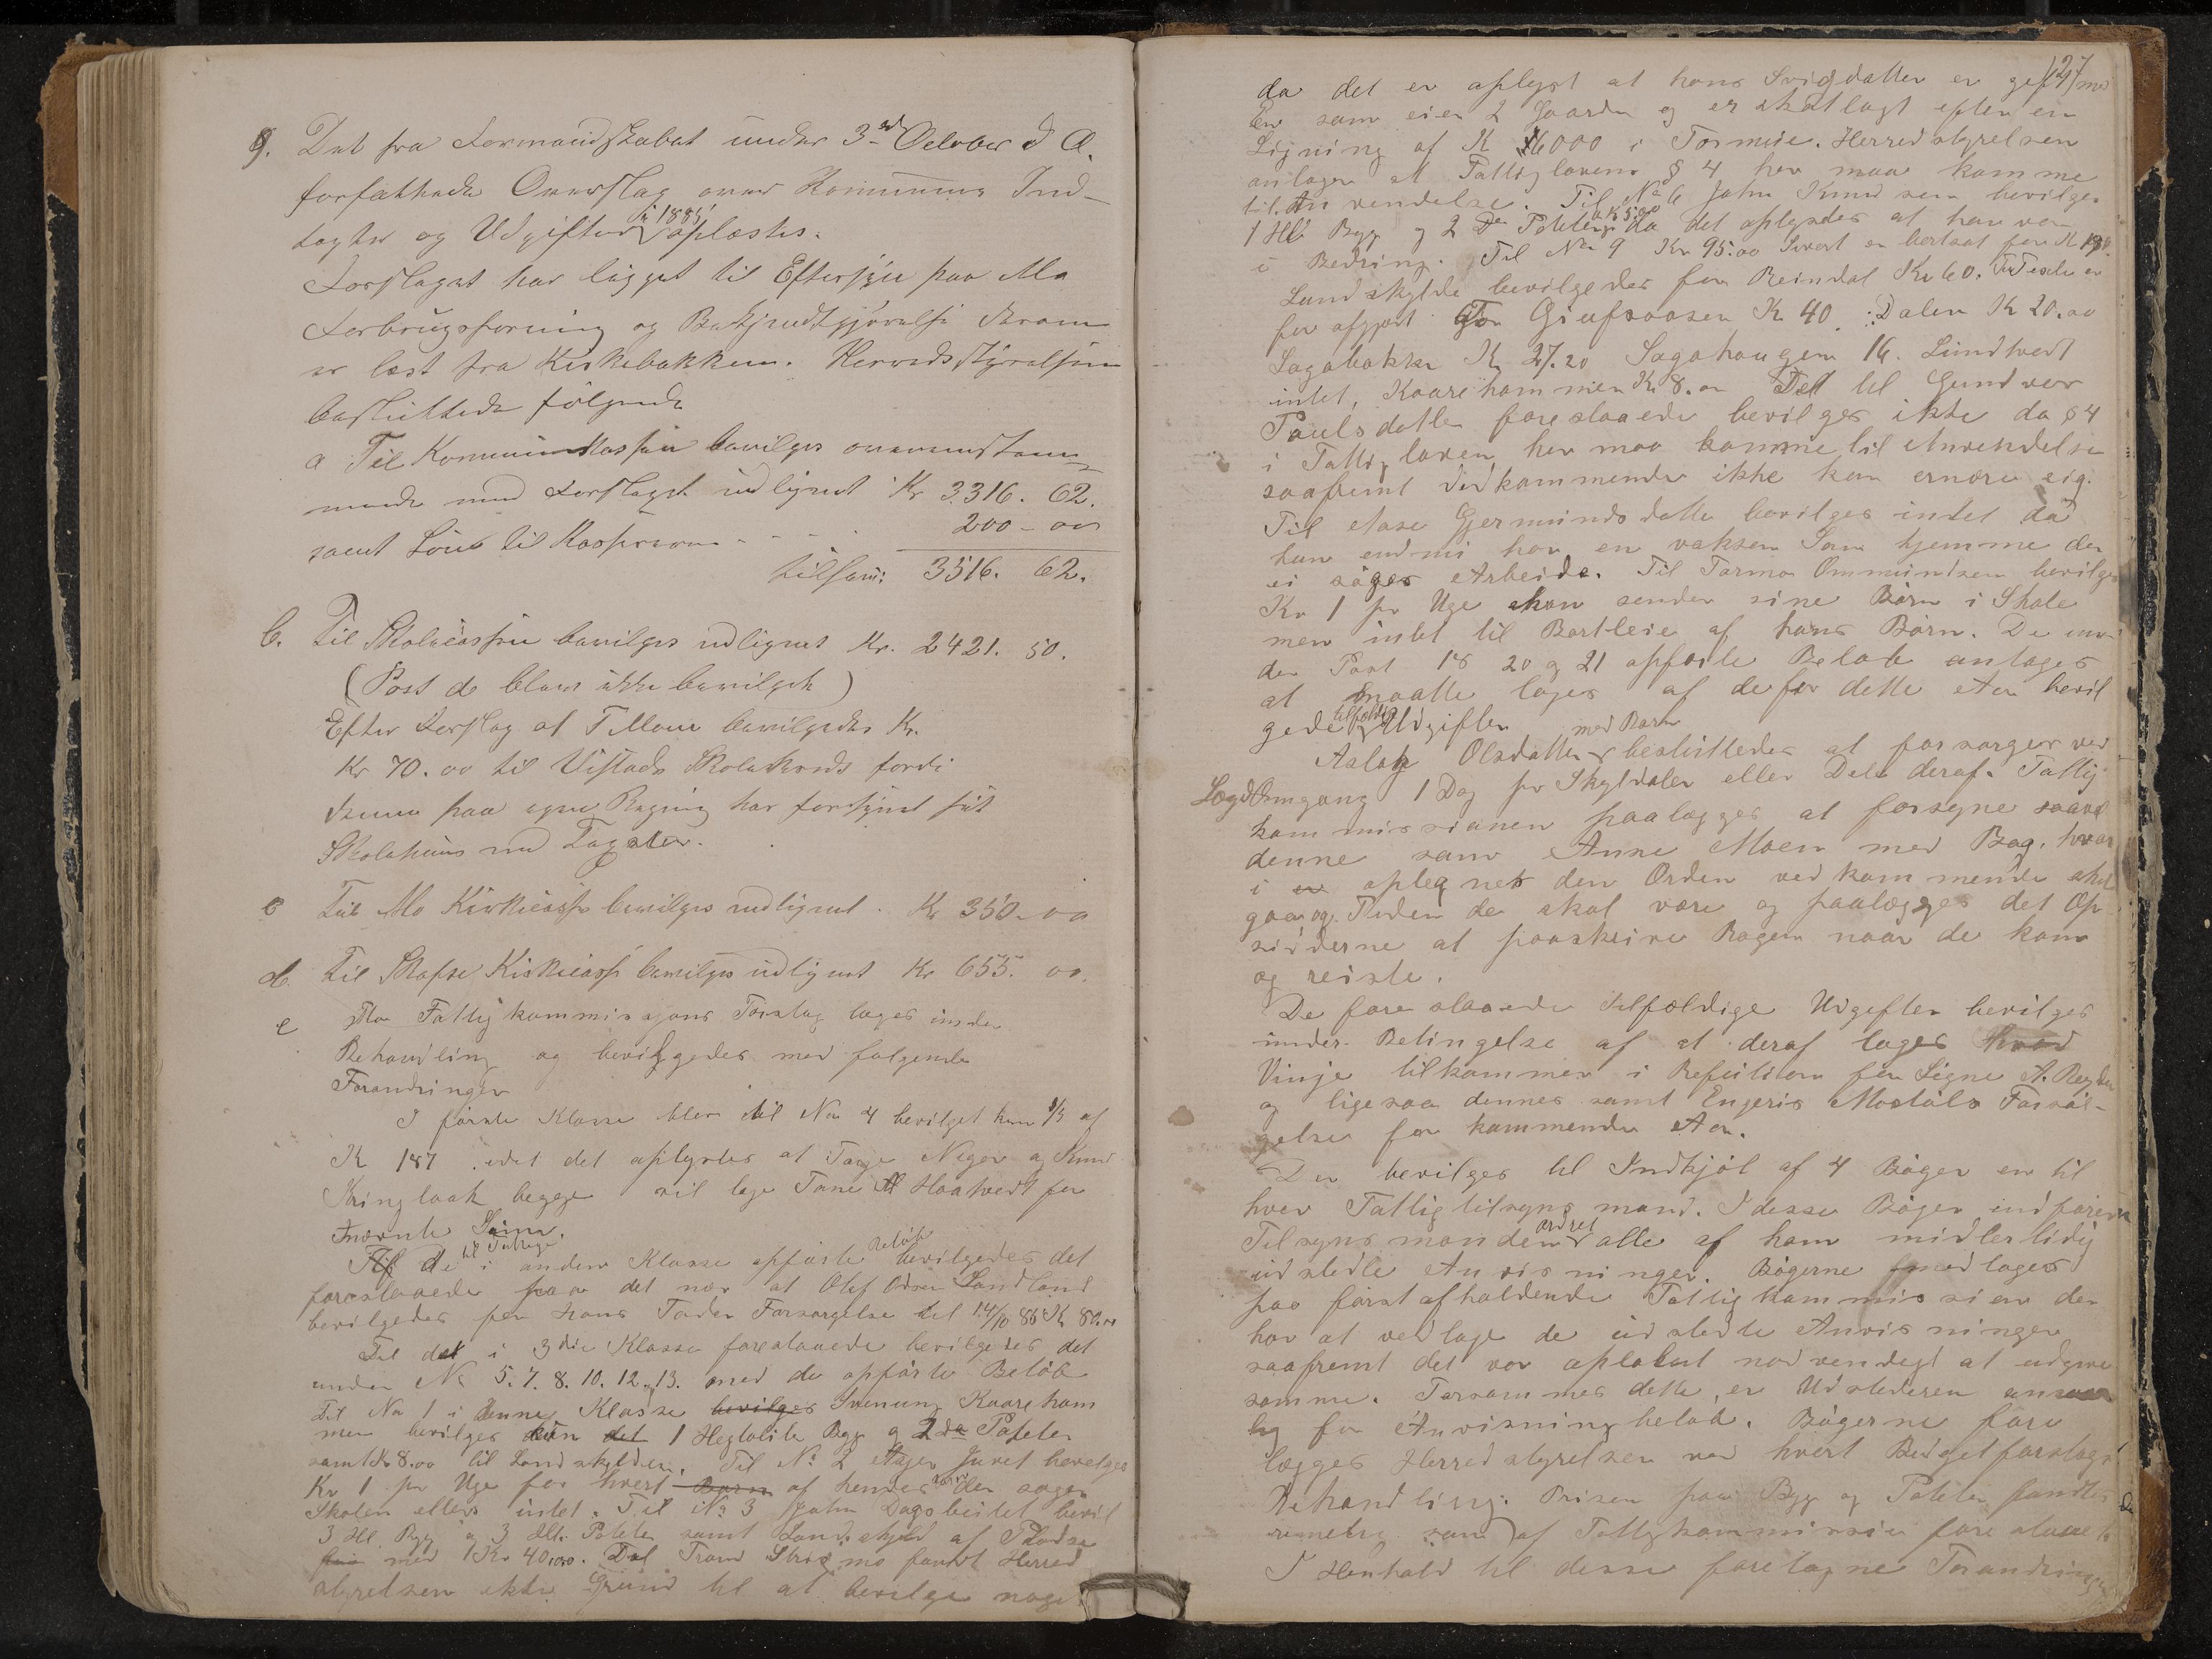 9. Det fra Formandskabet under 3d October d A.
forfattede Overslag over Komunens Ind-
tægter og Udgifter i 1885 oplæstes.
Forslaget har ligget til Eftersyn paa Mo
Forbrugsforening og Bekjendtgjørelse derom
er læst fra Kirkebakken. Herredsstyrelsen
besluttede følgende
a Til Kommunekassen bevilges overensstem-
mende med Forslaget udlignet Kr 3316. 62.
samt Løn til Kassereren - - - 200 - 00
tilsam: 3516. 62.
b. Til Skolekassen bevilges udlignet Kr. 2421. 50.
(Post de blev ikke bevilget)
Efter Forslag af T Moen bevilgedes Kr.
Kr 70. 00 til Vistads Skolekreds fordi
denne paa egen Regning har forsynet sit
Skolehuus med Tagsten.
c Til Mo Kirkekasse bevilges udlignet. Kr 350 - 00
d. Til Skafse Kirkekasse bevilges udlignet Kr 655. 00.
e Mo Fattigkommissjons Forslag toges under
Behandling og bevilgedes med følgende
Forandringer
I første Klasse blev til No 4 bevilget kun 1/3 af
K 187. idet det oplystes at Tarje Neger og Knud
Kringlaak begge vil tage Tone Haatvedt for
nævnte Sum.
Til de til Fattige i anden Klasse opførte Beløb bevilgedes det
foreslaaede paa det nær at Olaf Odsen Sandland
bevilgedes for Hans Faders Forsørgelse til 14/10 86 Kr 80.00
Til det i 3die Klasse foreslaaede bevilgedes det
under No 5. 7. 8. 10. 12. 13. med de opførte Beløb
Til No 1 i denne Klasse bevilges Svenung Kaareham
men bevilges kun det 1 Hegtoliter Byg og 2 do Poteter
samt Kr 8.00 til Landskylden. Til No 2 Juvet bevilges
Kr 1 pr Uge for hvert Barn af hendes der søger
Skolen ellers intet. Til No 3 John Dagsbeitet bevil
3 Hl. Byg og 3 Hl. Poteter samt Landskyld af
med 1 Kr 40.00. Til Trond Strismo fandt Herred
styrelsen ikke Grund til at bevilge noget
127
da det er oplyst at hans Svigdatter er gift med
En som eier 2 Gaarde og er skatlagt efter en
Ligning af K 16000 i Tørmoie. Herredstyrelsen
antager at Fattiglovens § 4 her maa komme
til Anvendelse. Til No 6 John Knudsen bevilges
1 Hl Byg og 2 Do Poteter da det oplystes at han var
i Bedring. Til No 9 Kr 95.00 Sivert er bortsat for K
Landskylde bevilgedes for Reindal Kr 60.
for afgjort For Giufsaasen Kr 40. Dalen K 20.00
Sagabakke K 27.20 Sagahaugen 16. Lundtvedt
intet, Kaarehammen Kr 8.00 Det til Gundvor
Paulsdatter foreslaaede bevilges ikke da § 4
i Fattigloven her maa komme til Anvendelse
saafremt Vedkommende ikke kan ernære sig.
Til Aase Gjermundsdatter bevilges intet da
hun endnu har en voksen Søn hjemme der
ei søger Arbeide. Til Tarmo Ommundsen bevilges
Kr 1 pr Uge han sender sine Børn i Skole
men intet til Bortleie af hans Børn. De un-
der Post 18 20 og 21 opførte Beløb antages
at maatte tages af de for dette Aar bevil
gede tilfeldige Udgifter
Aslaug Olsdatter med Barn besluttedes at forsørges ved
Lægdomgang 1 Dag pr Skyldaler eller Dele deraf. Fattig
kommissionen paalægges at forsyne saavel
denne som Anne Moen med Bog, hvor
i optegnes den Orden vedkommende skal
gaa og Tiden de skal være og paalægges det Op
sidderne at paaskrive Bogen naar de kom
og reiste.
De foreslaaede tilfældige Udgifter bevilges
under Betingelse af at deraf tages hvad
Vinje tilkommer i Refution for Signe A. Røyden
og ligesaa dennes samt Engeris Mostøls Forsør-
gelse for kommende Aar.
Der bevilges til Indkjøb af 4 Bøger en til
hver Fattigtilsynsmand. I disse Bøger indfører
Tilsynsmanden ordret alle af ham midlertidig
udstedte Anvisninger. Bøgerne medtages
paa først afholdende Fattigkommission der
har at vedtage de udstedte Anvisninger
saafremt det var absolut nødvendigt at udgive
samme. Forsømmes dette, er Udstederen ansvar
lig for Anvisningbeløb. Bøgerne fore
lægges Herredstyrelsen ved hvert Budgetforslags
Behandling. Prisen paa Byg og Poteter fandtes
rimelig som af Fattigkommission foreslaaet
I Henhold til disse foretagne Forandringer